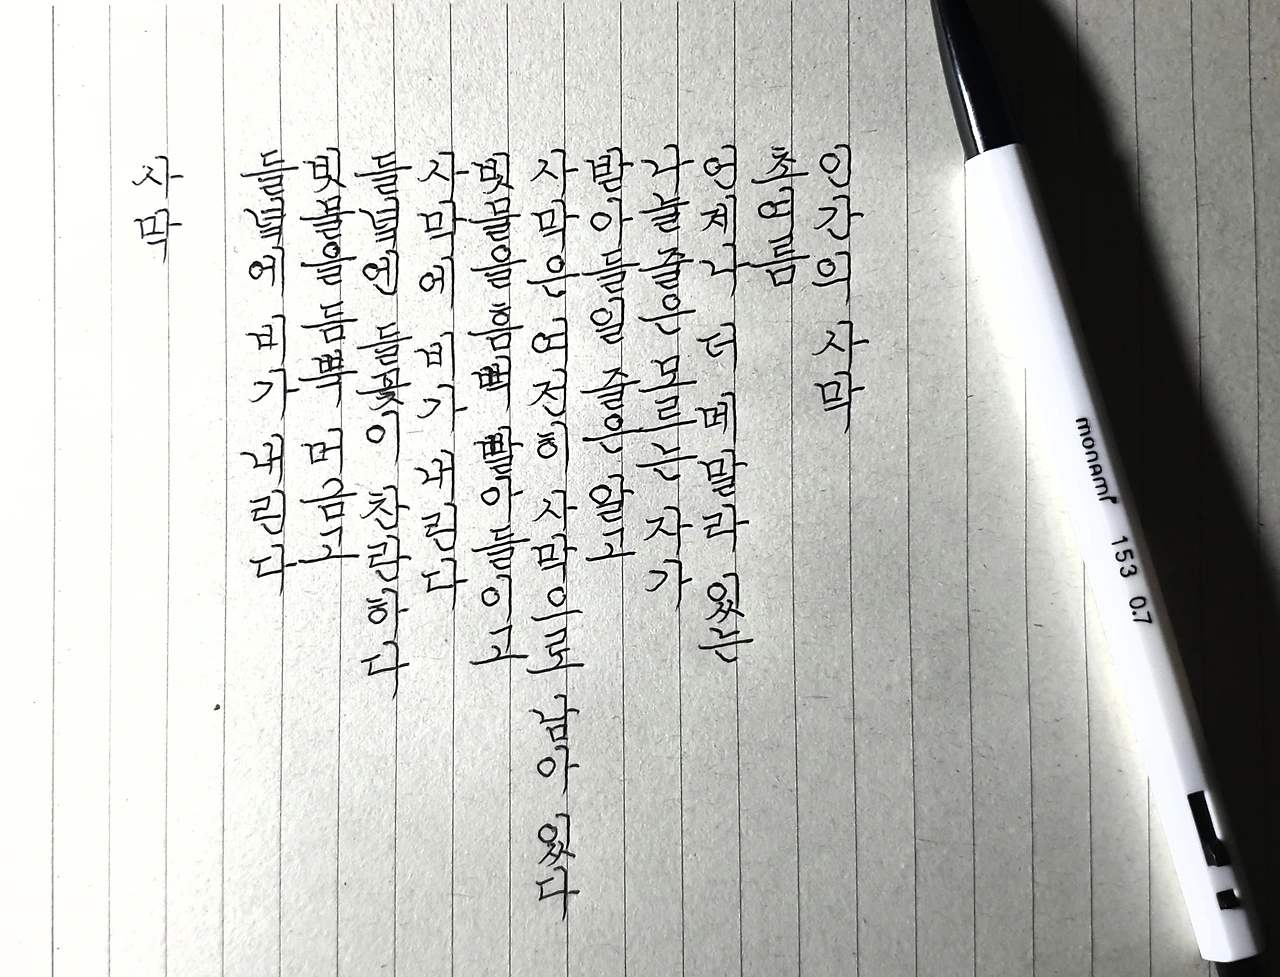 사막
들녘에 비가 내린다
빗물을 듬뿍 머금고
들녘엔 들꽃이 찬란하다
사막에 비가 내린다
빗물을 흠뻑 빨아들이고
사막은 여전히 사막으로 남아 있다
받아들일 줄은 알고
나눌 줄은 모르는 자가
언제나 더 메말라 있는
초여름
인간의 사막
monami 153 0.7